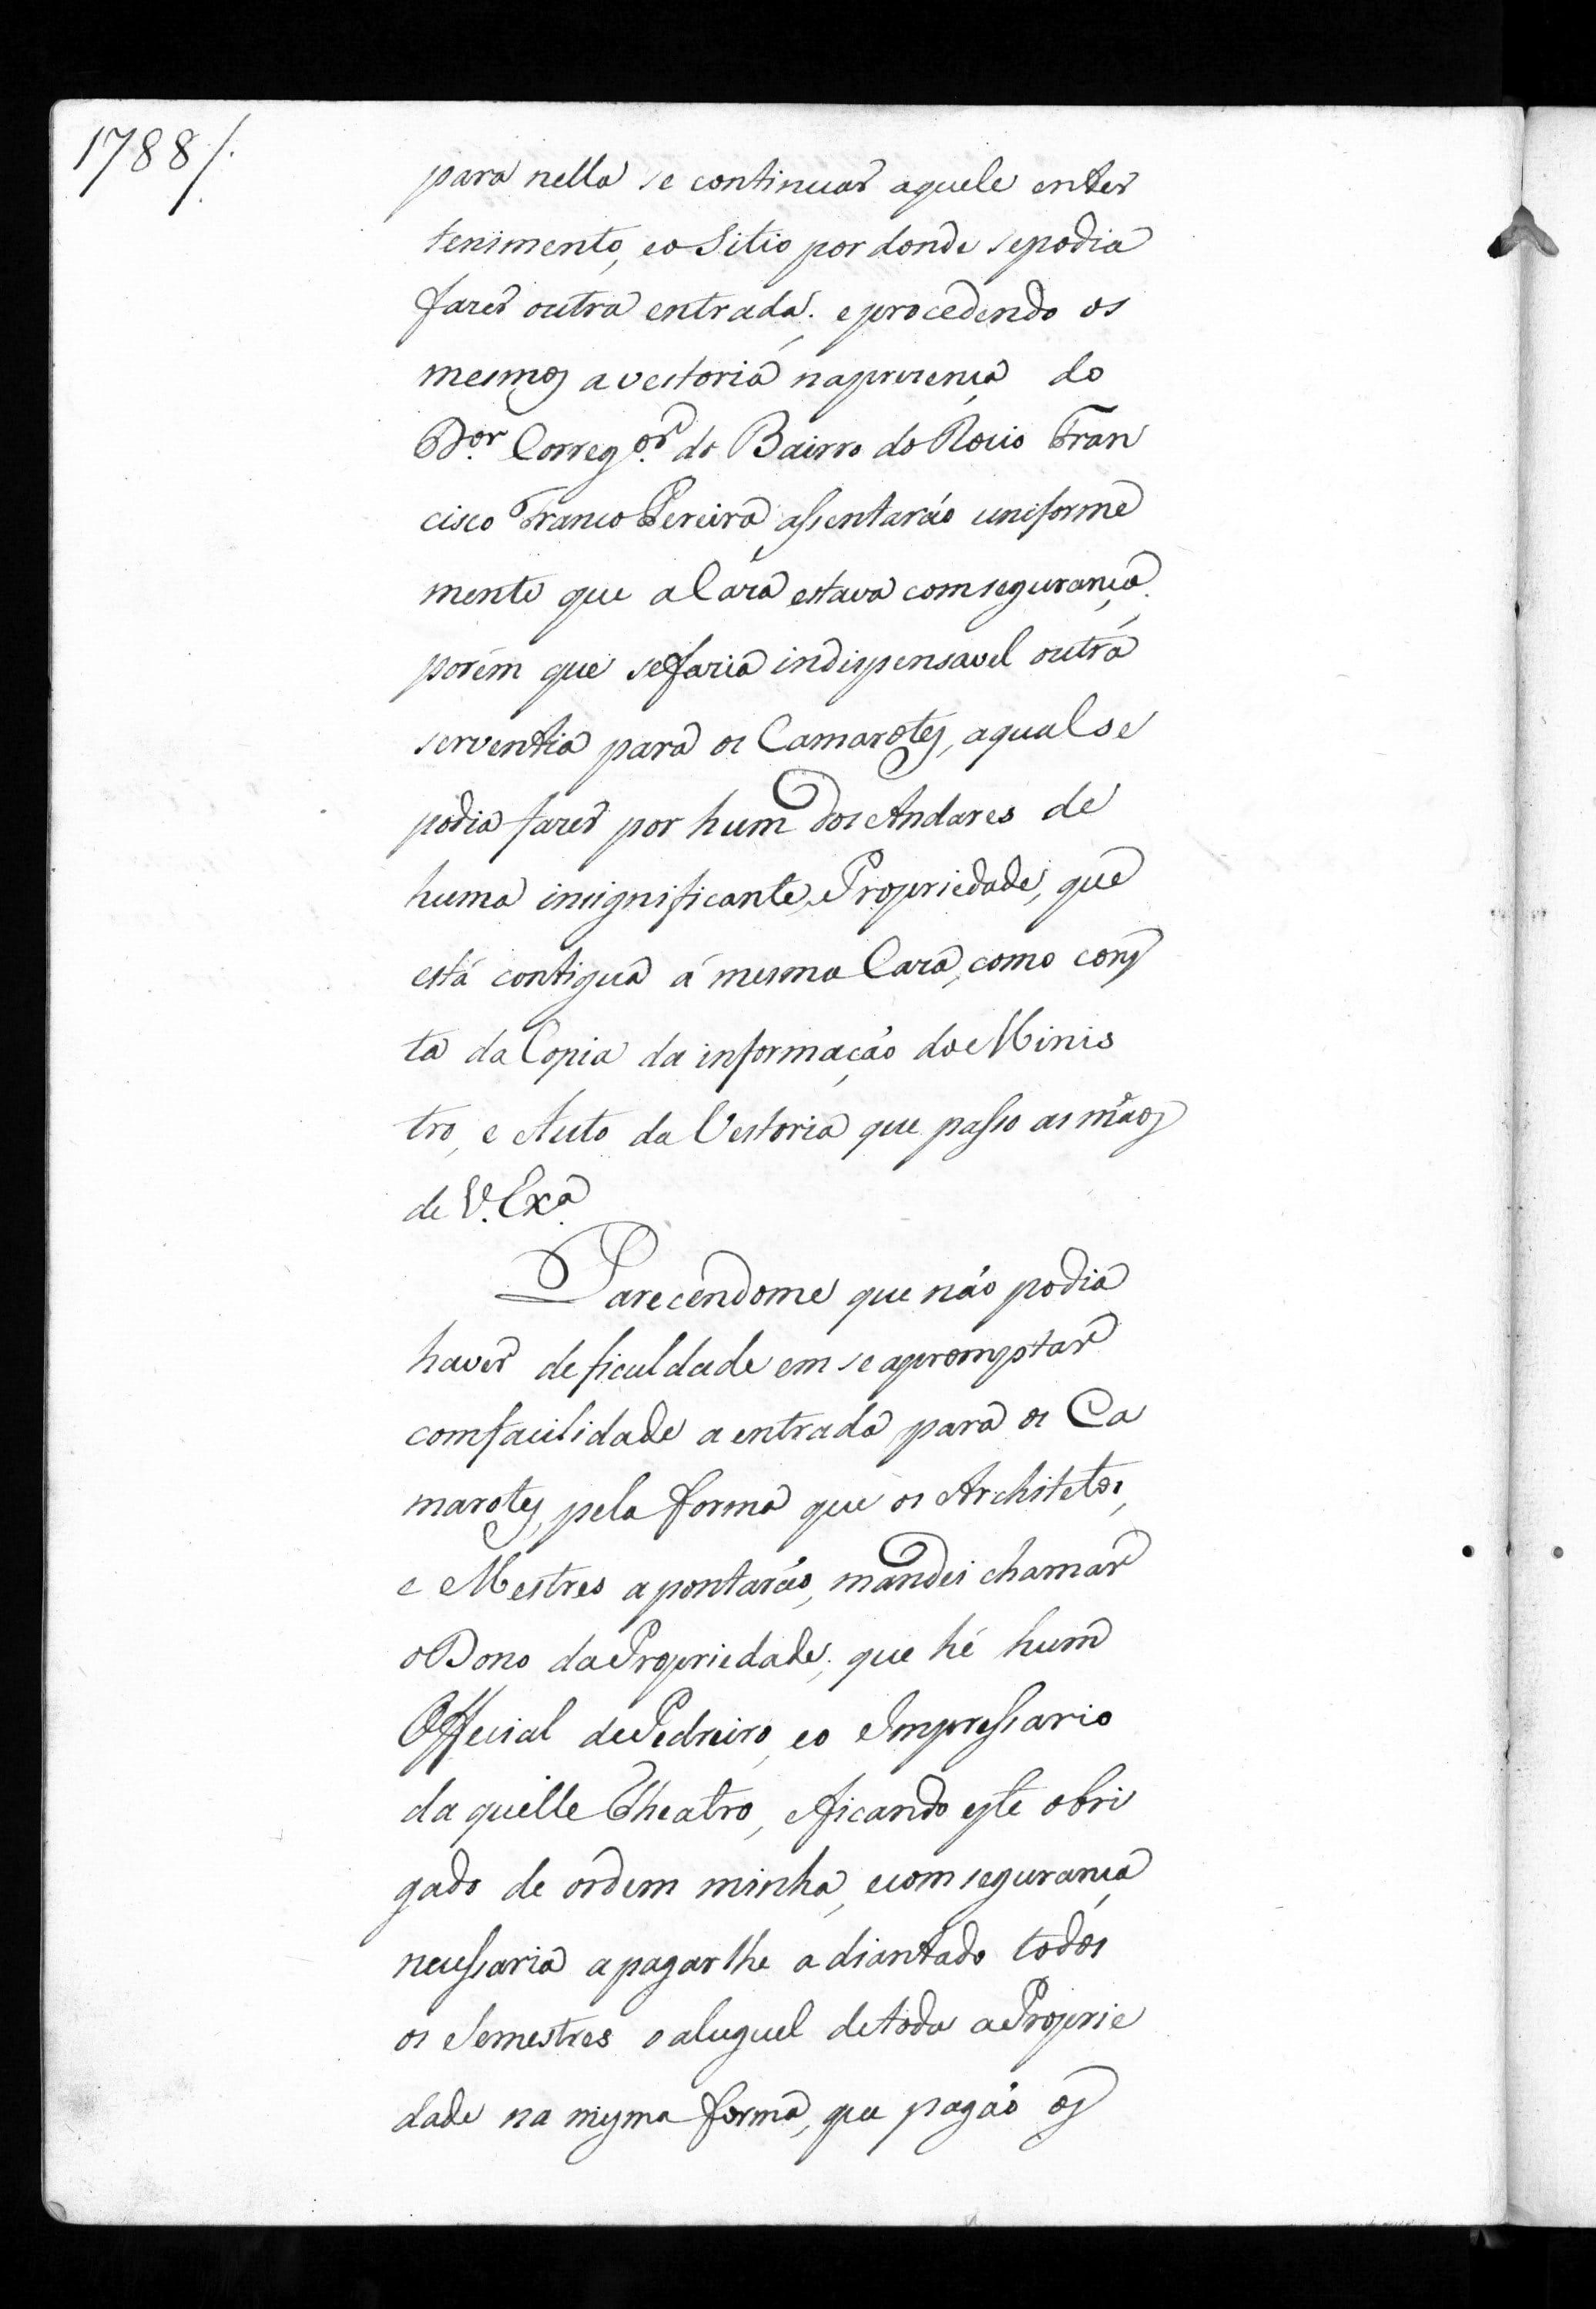 1788/.
para nella se continuar aquele enter
tenimento, eo Sitio por donde sepodia
fazer outra entrada; e procedendo os
mesmos avestoria naprezença do
Dor. Corregor. do Bairro do Rocio Fran
cisco Franco Pereira assentaráo uniforme
mente que aCaza estava comsegurança;
porém que sefazia indispensavel outra
serventia para os Camarotes, aqualse
podia fazer por hum dos Andares de
huma insignificante Propriedade, que
está contigua á mesma Caza, como cons
ta daCopia da informaçáo do Minis
tro, e Auto da Vestoria que passo as máos
de V. Exa.
Parecendome que náo podia
haver deficuldade em se apromptar
comfacilidade a entrada para os Ca
marotes, pela forma que os Architetos,
e Mestres apontaráo, mandei chamar
oDono daPropriedade; que hé hum
Official dePedreiro, eo Impressario
da quelle Theatro, eficando este obri
gado de ordem minha, ecom segurança
necessaria apagarlhe adiantado todos
os Semestres o aluguel detoda aProprie
dade na mesma forma, que pagáo os